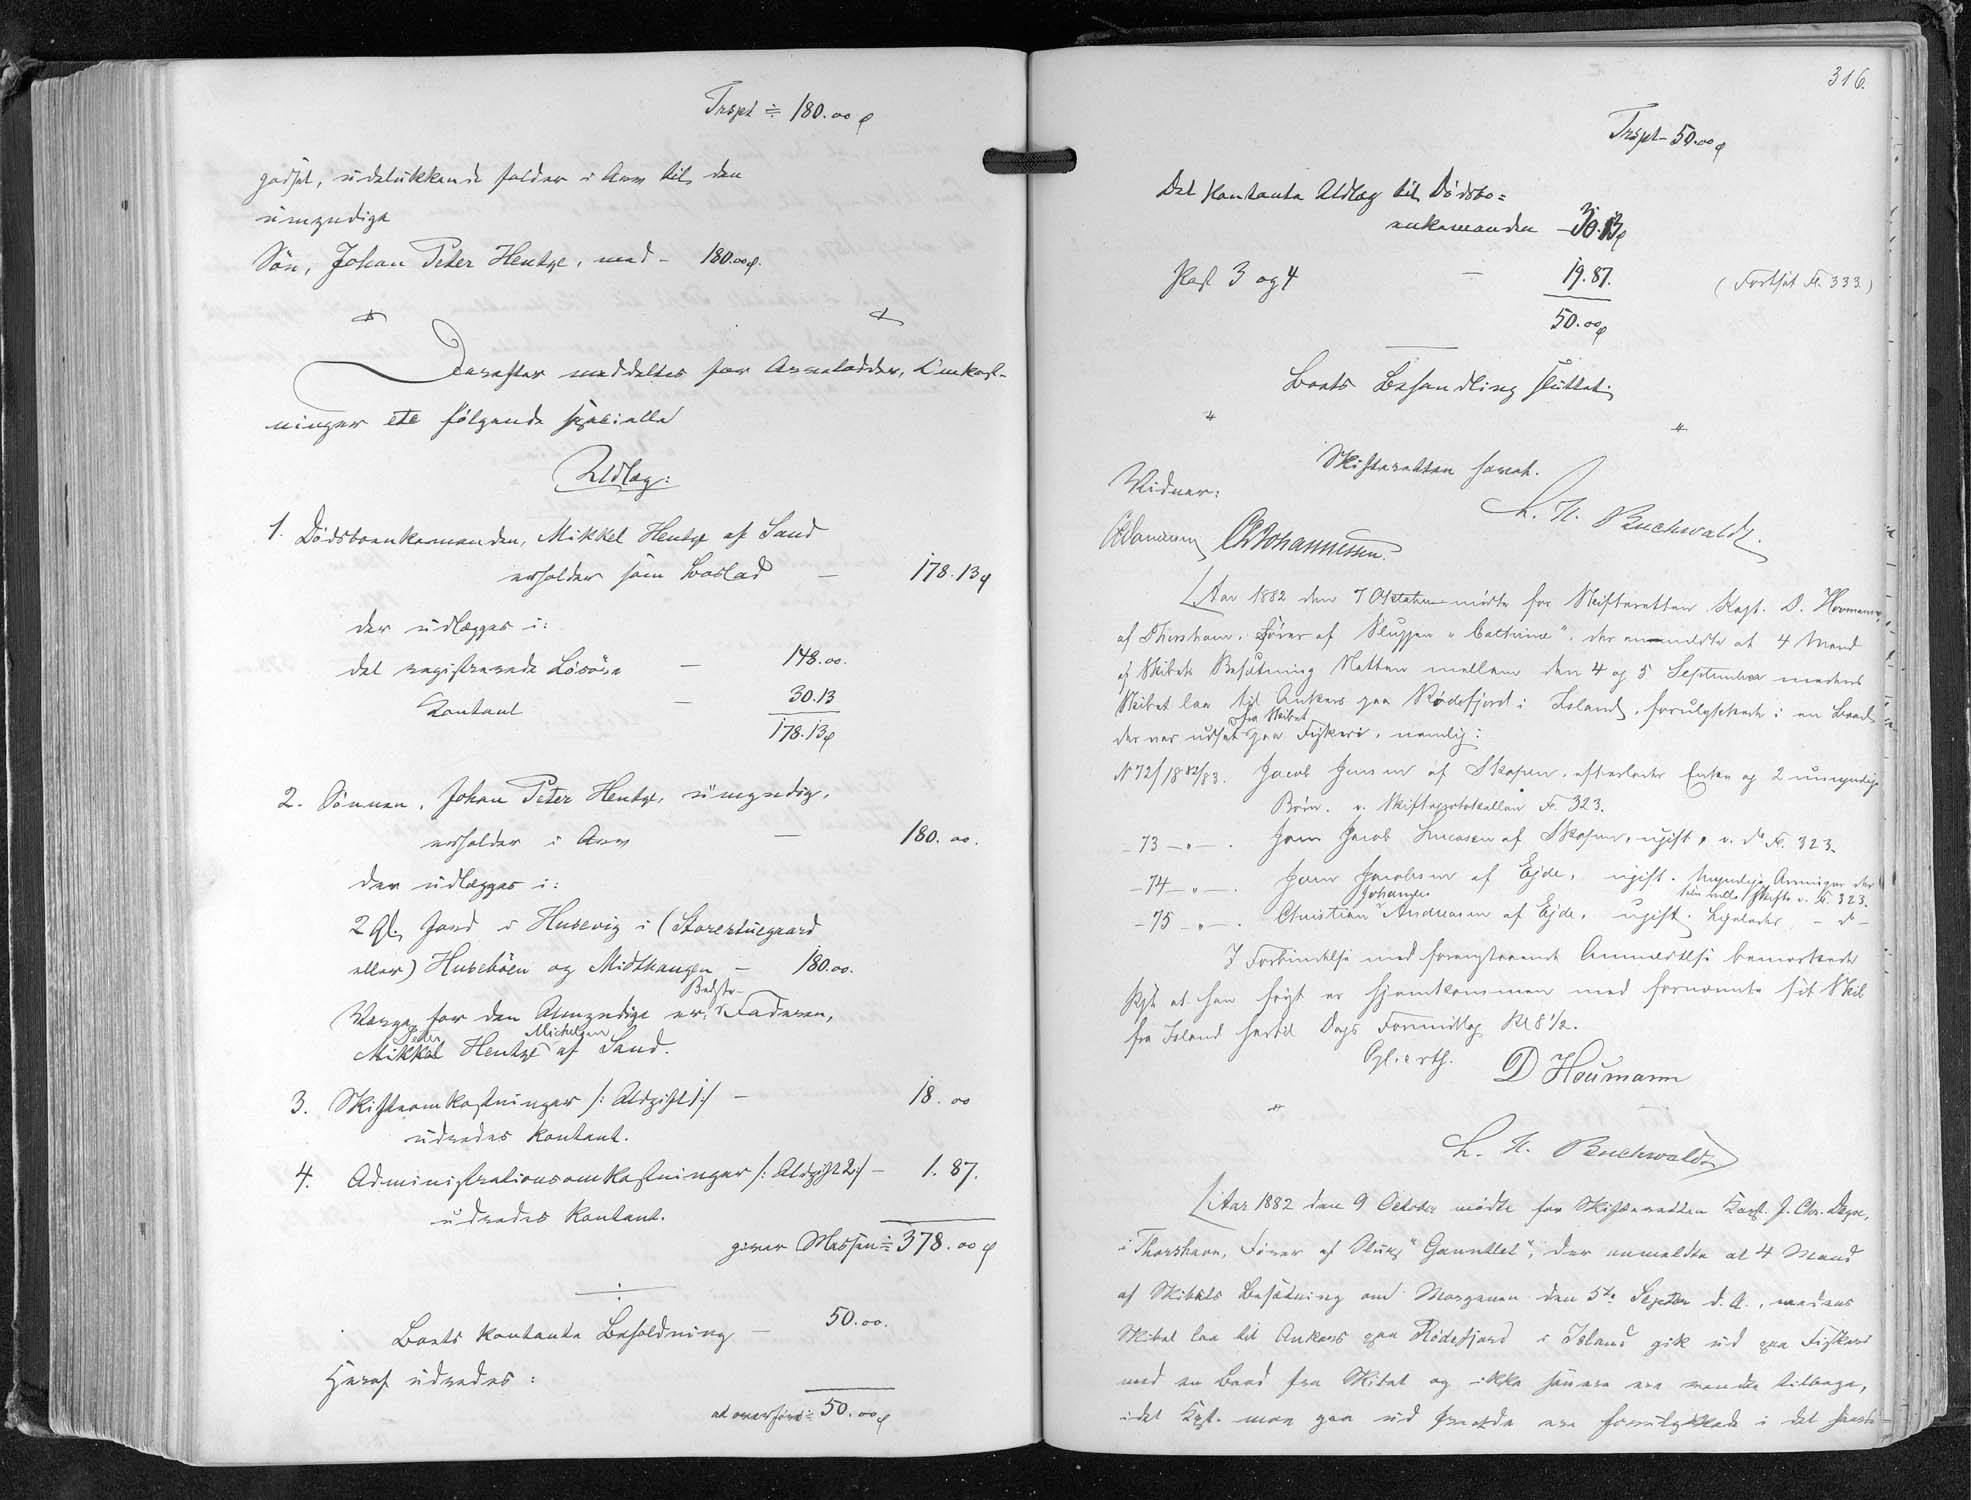 Trspt ÷ 180.00 ø
godset, udelukkende falder i Arv til den
umyndige
Søn, Johan Peter Hentze, med - 180.00 ø.
Derefter meddeltes for Arvelodder, Omkost-
ninger etc følgende specielle
Udlæg:
1. Dødsboenkemanden, Mikkel Hentze af Sand
erholder som Boslod - 178.13 ø
der udlægges i:
det registrerede Løsøre - 148.00.
Kontant - 30.13
178.13 ø
2. Sønnen, Johan Peter Hentze, umyndig,
erholder i Arv - 180.00.
der udlægges i:
2 Gl. Jord i Husevig i (Storestuegaard
eller) Husebøen og Midthaugen - 180.00.
Bedste-
Værge for den Umyndige er: Faderen,
Peder Michelsen
Mikkel Hentze af Sand.
3. Skifteomkostninger /: Udgift 1 :/ - 18.00
udredes kontant.
4. Administrationsomkostninger /: Udgift 2 :/ - 1.87.
udredes kontant.
giver Massen ÷ 378.00 ø
Boets kontante Beholdning - 50.00.
Heraf udredes:
at overføre ÷ 50.00 ø
316.
Trspt - 50.00 ø
Det kontante Udlæg til Dødsbo=
enkemanden - 30.13 ø
Post 3 og 4 - 19.87.
(Fortsat Fo. 333.)
50.00 ø
Boets Behandling sluttet.
Skifteretten hævet.
Vidner:
L. H. Buchwaldt.
Johannessen.
Aar 1882 den 7 Oktober mødte for Skifteretten Kapt. D. Houmann,
af Thorshavn, Fører af Sluppen " ", der anmeldte at 4 Mand
af Skibets Besætning Natten mellem den 4 og 5 September medens
Skibet laa til Ankers paa Rødefjord i Island, forulykkede i en Baad
fra Skibet
der var udsat paa Fiskeri, nemlig:
No 72/1882/83. Jacob Jensen af Skopen, efterlader Enke og 2 umyndige
Børn. v. Skifteprotokollen Fo. 323.
- 73 - " - . Joen Jacob Lucasen af Skopen, ugift, v. do Fo. 323.
- 74 - " - . Joen Jacobsen af Ejde, ugift. Myndige Arvinger der
selv ville skifte v. Fo. 323.
Johannes
- 75 - " - . Christian Andreasen af Ejde, ugift. - do -
I Forbindelse med foranstaaende Anmeldelse bemærkede
Kpt at han først er hjemkommen med fornævnte sit Skib
fra Island hertil Dags Formiddag Kl 8 1/2.
D Houmann
L. H. Buchwaldt
Aar 1882 den 9 October mødte for Skifteretten Kapt. J. Chr. Djone,
i Thorshavn, Fører af Slup "Gauntlet", der anmeldte at 4 Mand
af Skibets Besætning om Morgenen den 5te Septbr d. A., medens
Skibet laa til Ankers paa Rødefjord i Island gik ud paa Fiskeri
med en Baad fra Skibet og ikke senere ere vendte tilbage,
idet Kpt. maa gaa ud fra at de ere forulykkede i det